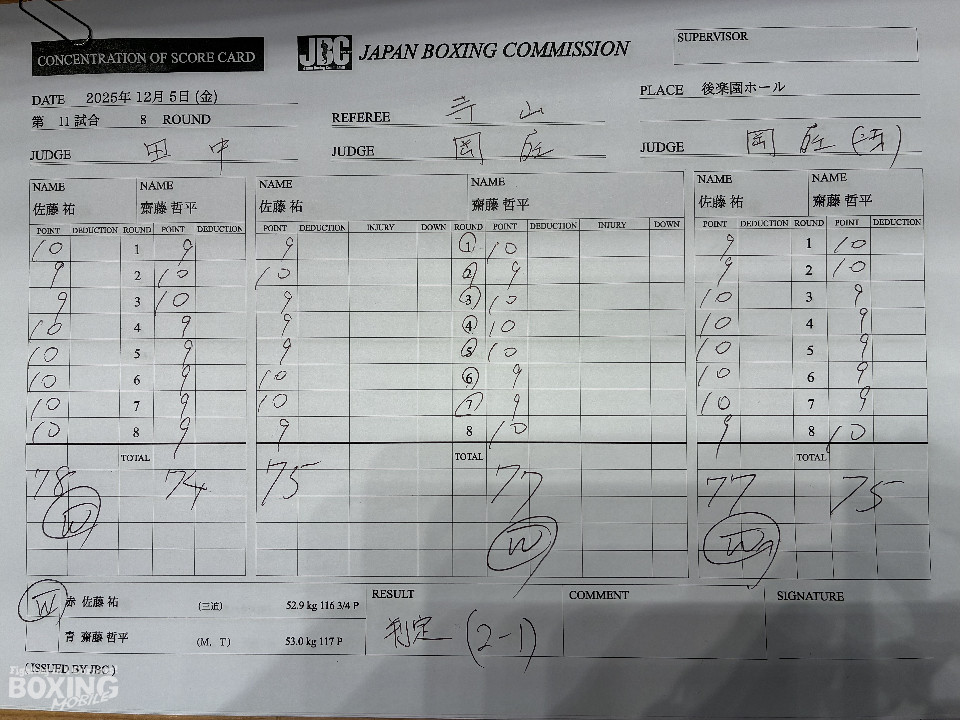 CONCENTRATION OF SCORE CARD
JBC JAPAN BOXING COMMISSION
SUPERVISOR
DATE 2025年 12月 5日 (金)
PLACE 後楽園ホール
第 11試合 8 ROUND
REFEREE 寺山
JUDGE 田中
JUDGE 岡庄
JUDGE 岡庄
NAME NAME NAME NAME NAME NAME
佐藤 祐 齋藤 哲平 佐藤 祐 齋藤 哲平 佐藤 祐 齋藤 哲平
POINT DEDUCTION ROUND POINT DEDUCTION POINT DEDUCTION INJURY DOWN ROUND POINT DEDUCTION INJURY DOWN POINT DEDUCTION ROUND POINT DEDUCTION
10 1 9 9 1 10 9 1 10
9 2 10 10 2 9 9 2 10
9 3 10 9 3 10 10 3 9
10 4 9 9 4 10 10 4 9
10 5 9 9 5 10 10 5 9
10 6 9 10 6 9 10 6 9
10 7 9 10 7 9 10 7 9
10 8 9 9 8 10 9 8 10
TOTAL TOTAL TOTAL
78 74 75 77 77 75
W W W
W 赤 佐藤 祐 (三迫) 52.9 kg 116 3/4 P
青 齋藤 哲平 (M．T) 53.0 kg 117 P
RESULT
判定 (2-1)
COMMENT
SIGNATURE
(ISSUED BY JBC)
BOXING
MOBILE